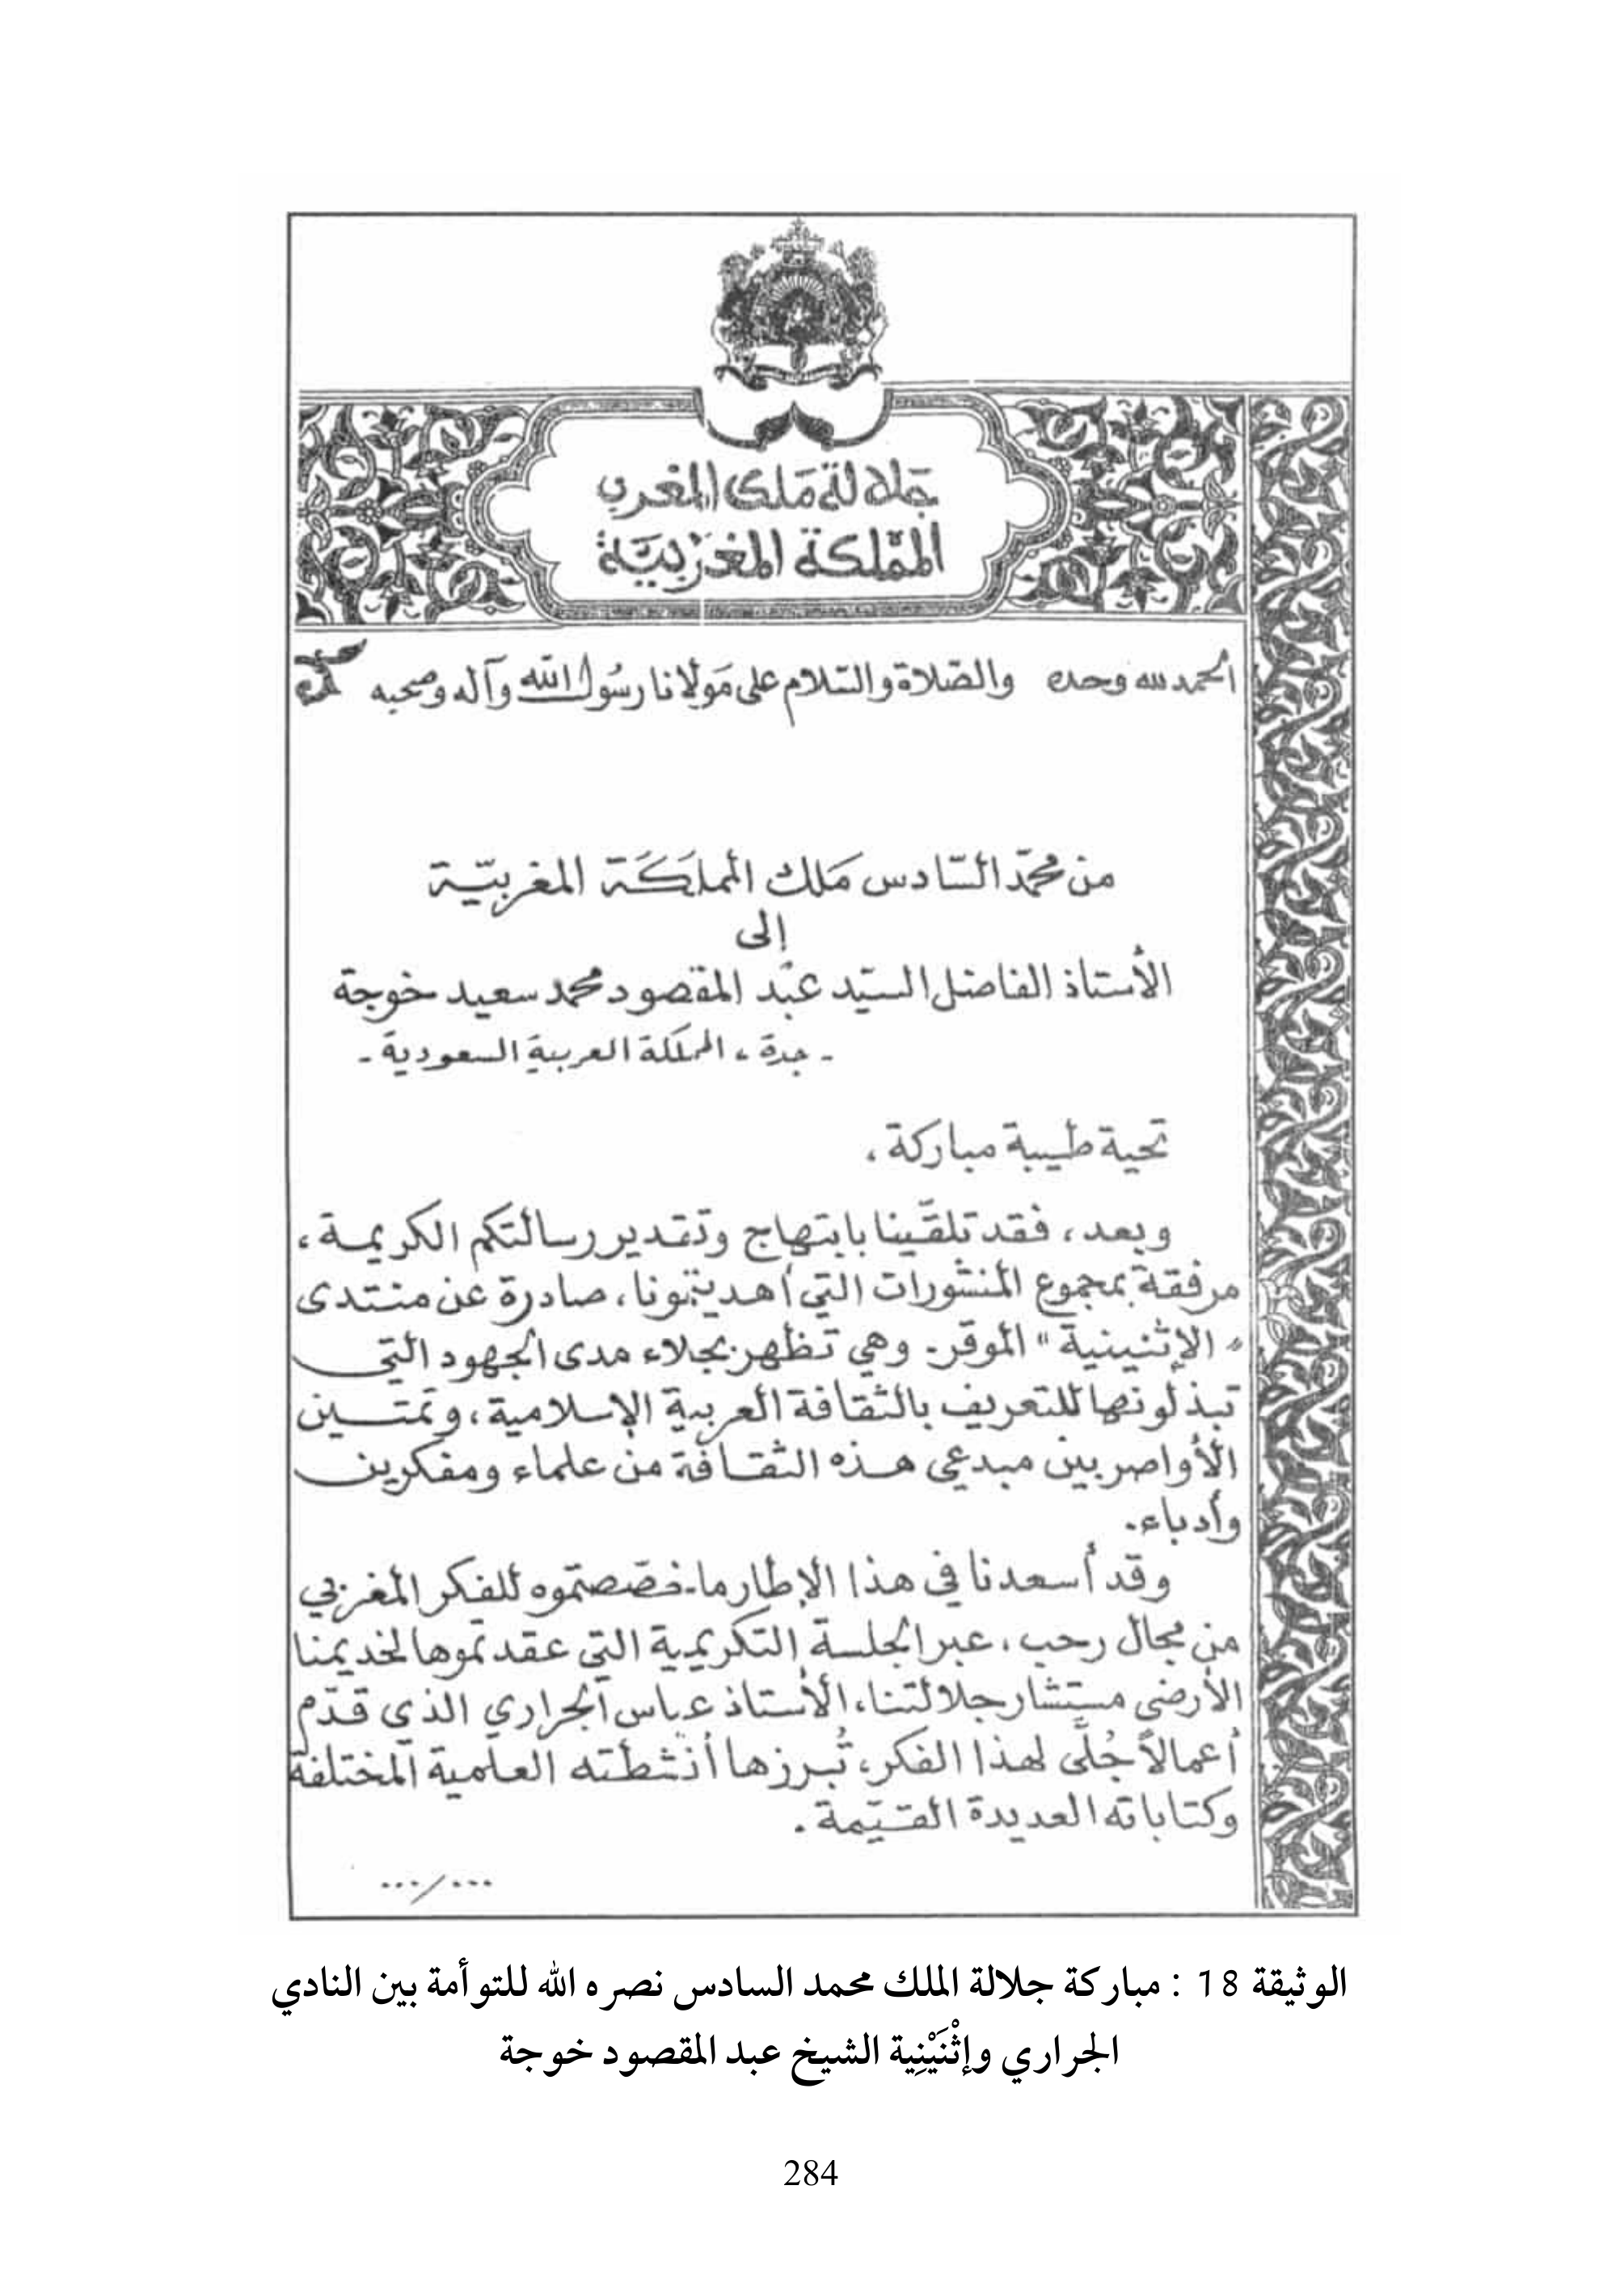 جلالة ملك المغرب
المملكة المغربية
الحمد لله وحده والصّلاة والسّلام على مَولانا رسُول الله وآله وصحبه
من محمّد السّادس مَلك المملَكَة المغربيّة
إلى
الأستاذ الفاضل السيّد عبْد المقصود محمد سعيد خوجة
- جدة ، المملكة العربية السعودية -
تحية طيبة مباركة ،
وبعد ، فقد تلقّينا بابتهاج وتقدير رسالتكم الكريمة ،
مرفقة بمجموع المنشورات التي أهديتمونا ، صادرة عن منتدى
" الإثنينية " الموقر . وهي تظهر بجلاء مدى الجهود التي
تبذلونها للتعريف بالثقافة العربية الإسلامية ، وتمتين
الأواصر بين مبدعي هذه الثقافة من علماء ومفكرين
وأدباء .
وقد أسعدنا في هذا الإطار ما خصّصتموه للفكر المغربي
من مجال رحب ، عبر الجلسة التكريمية التي عقدتموها لخديمنا
الأرضى مستشار جلالتنا ، الأستاذ عباس الجراري الذي قدّم
أعمالاً جُلَّى لهذا الفكر ، تُبرزها أنشطته العلمية المختلفة
وكتاباته العديدة القيّمة .
.../...
الوثيقة 18 : مباركة جلالة الملك محمد السادس نصره الله للتوأمة بين النادي
الجراري وإثْنَيْنِية الشيخ عبد المقصود خوجة
284